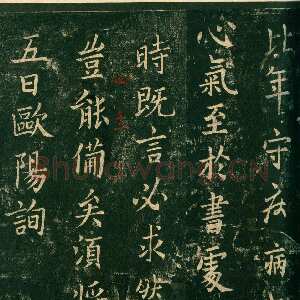 比年守疾病
心氣至於書處
時既言必求然
豈能備矣須
五日歐陽詢